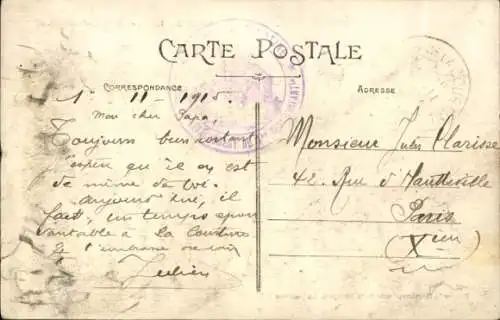 CARTE POSTALE
CORRESPONDANCE
ADRESSE
1 - 11 - 1915.
Mon cher Papa,
Toujours bien portant
j'espère qu'il en est
de même de toi.
Aujourd'hui, il
fait, un temps épou
vantable à la Courtine
Je t'embrasse
Julien
Monsieur Jules Clarisse
42. Rue d'Hauteville
Paris
(Xème)